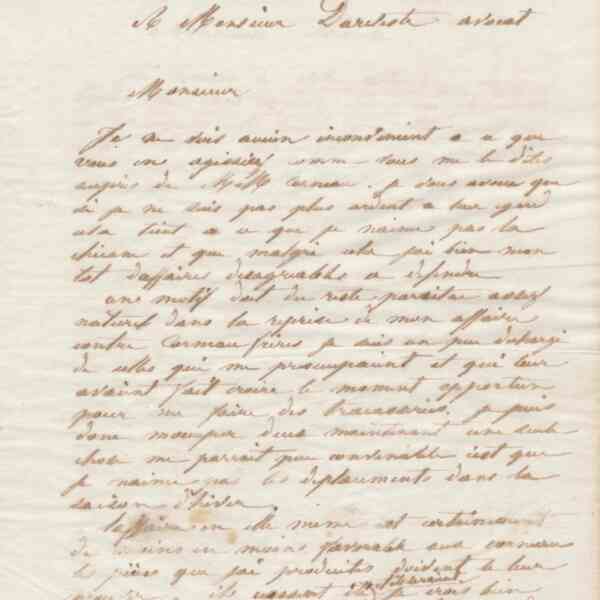 A Monsieur Dareste avocat
Monsieur
Je ne vois aucun inconvenient a ce que
vous en agissiez comme vous me le dites
aupres de MM Cormeau. je vous avoue que
si je ne suis pas plus ardent a leur egard
cela tient a ce que je naime pas la
chicane et que malgré cela j'ai bien mon
lot daffaires desagreables a defendre
une motif doit du reste paraitre assez
naturel dans la reprise de mon affaire
contre Cormeau frères je suis un peu dechargé
de celles qui me preoccupaient et qui leur
avaient fait croire le moment opportun
pour me faire des tracasseries. je puis
donc moccuper deux maintenant une seule
chose me parrait peu convenable c'est que
je naime pas les deplacements dans la
saison d'hiver
laffaire en elle meme est certainement
de moins en moins favorable aux cormeau
les pièces que j'ai produites doivent le leur
ils je crois bien